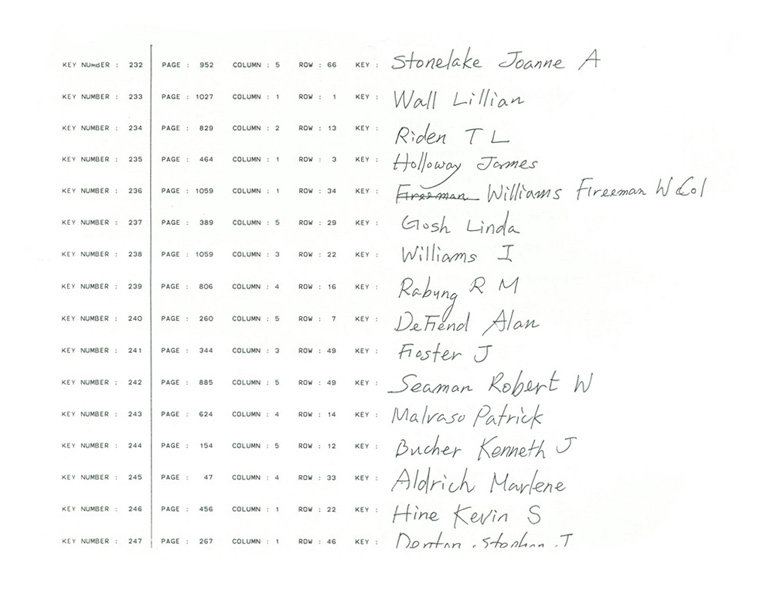 KEY NUMBER : 232 PAGE : 952 COLUMN : 5 ROW : 66 KEY : Stonelake Joanne A
KEY NUMBER : 233 PAGE : 1027 COLUMN : 1 ROW : 1 KEY : Wall Lillian
KEY NUMBER : 234 PAGE : 829 COLUMN : 2 ROW : 13 KEY : Riden T L
KEY NUMBER : 235 PAGE : 464 COLUMN : 1 ROW : 3 KEY : Holloway James
KEY NUMBER : 236 PAGE : 1059 COLUMN : 1 ROW : 34 KEY : Freeman Williams Freeman W Col
KEY NUMBER : 237 PAGE : 389 COLUMN : 5 ROW : 29 KEY : Gosh Linda
KEY NUMBER : 238 PAGE : 1059 COLUMN : 3 ROW : 22 KEY : Williams I
KEY NUMBER : 239 PAGE : 806 COLUMN : 4 ROW : 16 KEY : Rabung R M
KEY NUMBER : 240 PAGE : 260 COLUMN : 5 ROW : 7 KEY : DeFiend Alan
KEY NUMBER : 241 PAGE : 344 COLUMN : 3 ROW : 49 KEY : Foster J
KEY NUMBER : 242 PAGE : 885 COLUMN : 5 ROW : 49 KEY : Seaman Robert W
KEY NUMBER : 243 PAGE : 624 COLUMN : 4 ROW : 14 KEY : Malvaso Patrick
KEY NUMBER : 244 PAGE : 154 COLUMN : 5 ROW : 12 KEY : Bucher Kenneth J
KEY NUMBER : 245 PAGE : 47 COLUMN : 4 ROW : 33 KEY : Aldrich Marlene
KEY NUMBER : 246 PAGE : 456 COLUMN : 1 ROW : 22 KEY : Hine Kevin S
KEY NUMBER : 247 PAGE : 267 COLUMN : 1 ROW : 46 KEY :